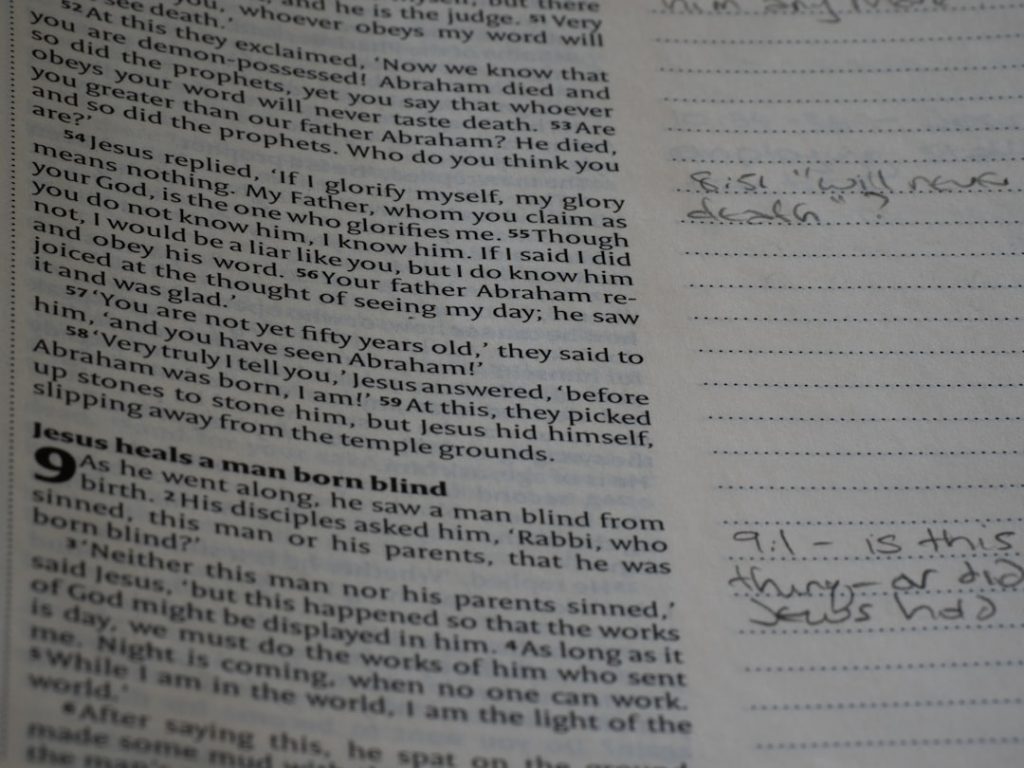 and he is the judge. 51 Very
you, whoever obeys my word will
see death.'
52 At this they exclaimed, 'Now we know that
you are demon-possessed! Abraham died and
so did the prophets, yet you say that whoever
obeys your word will never taste death. 53 Are
you greater than our father Abraham? He died,
and so did the prophets. Who do you think you
are?'
54 Jesus replied, 'If I glorify myself, my glory
means nothing. My Father, whom you claim as
your God, is the one who glorifies me. 55 Though
you do not know him, I know him. If I said I did
not, I would be a liar like you, but I do know him
and obey his word. 56 Your father Abraham re-
joiced at the thought of seeing my day; he saw
it and was glad.'
57 'You are not yet fifty years old,' they said to
him, 'and you have seen Abraham!'
58 'Very truly I tell you,' Jesus answered, 'before
Abraham was born, I am!' 59 At this, they picked
up stones to stone him, but Jesus hid himself,
slipping away from the temple grounds.
Jesus heals a man born blind
9 As he went along, he saw a man blind from
birth. 2 His disciples asked him, 'Rabbi, who
sinned, this man or his parents, that he was
born blind?'
3 'Neither this man nor his parents sinned,'
said Jesus, 'but this happened so that the works
of God might be displayed in him. 4 As long as it
is day, we must do the works of him who sent
me. Night is coming, when no one can work.
5 While I am in the world, I am the light of the
world.'
6 After saying this, he spat on the ground
made some mud with
the man's
him any more
8:51 "will never
death"?
9:1 - is this
thing - or did
Jews had